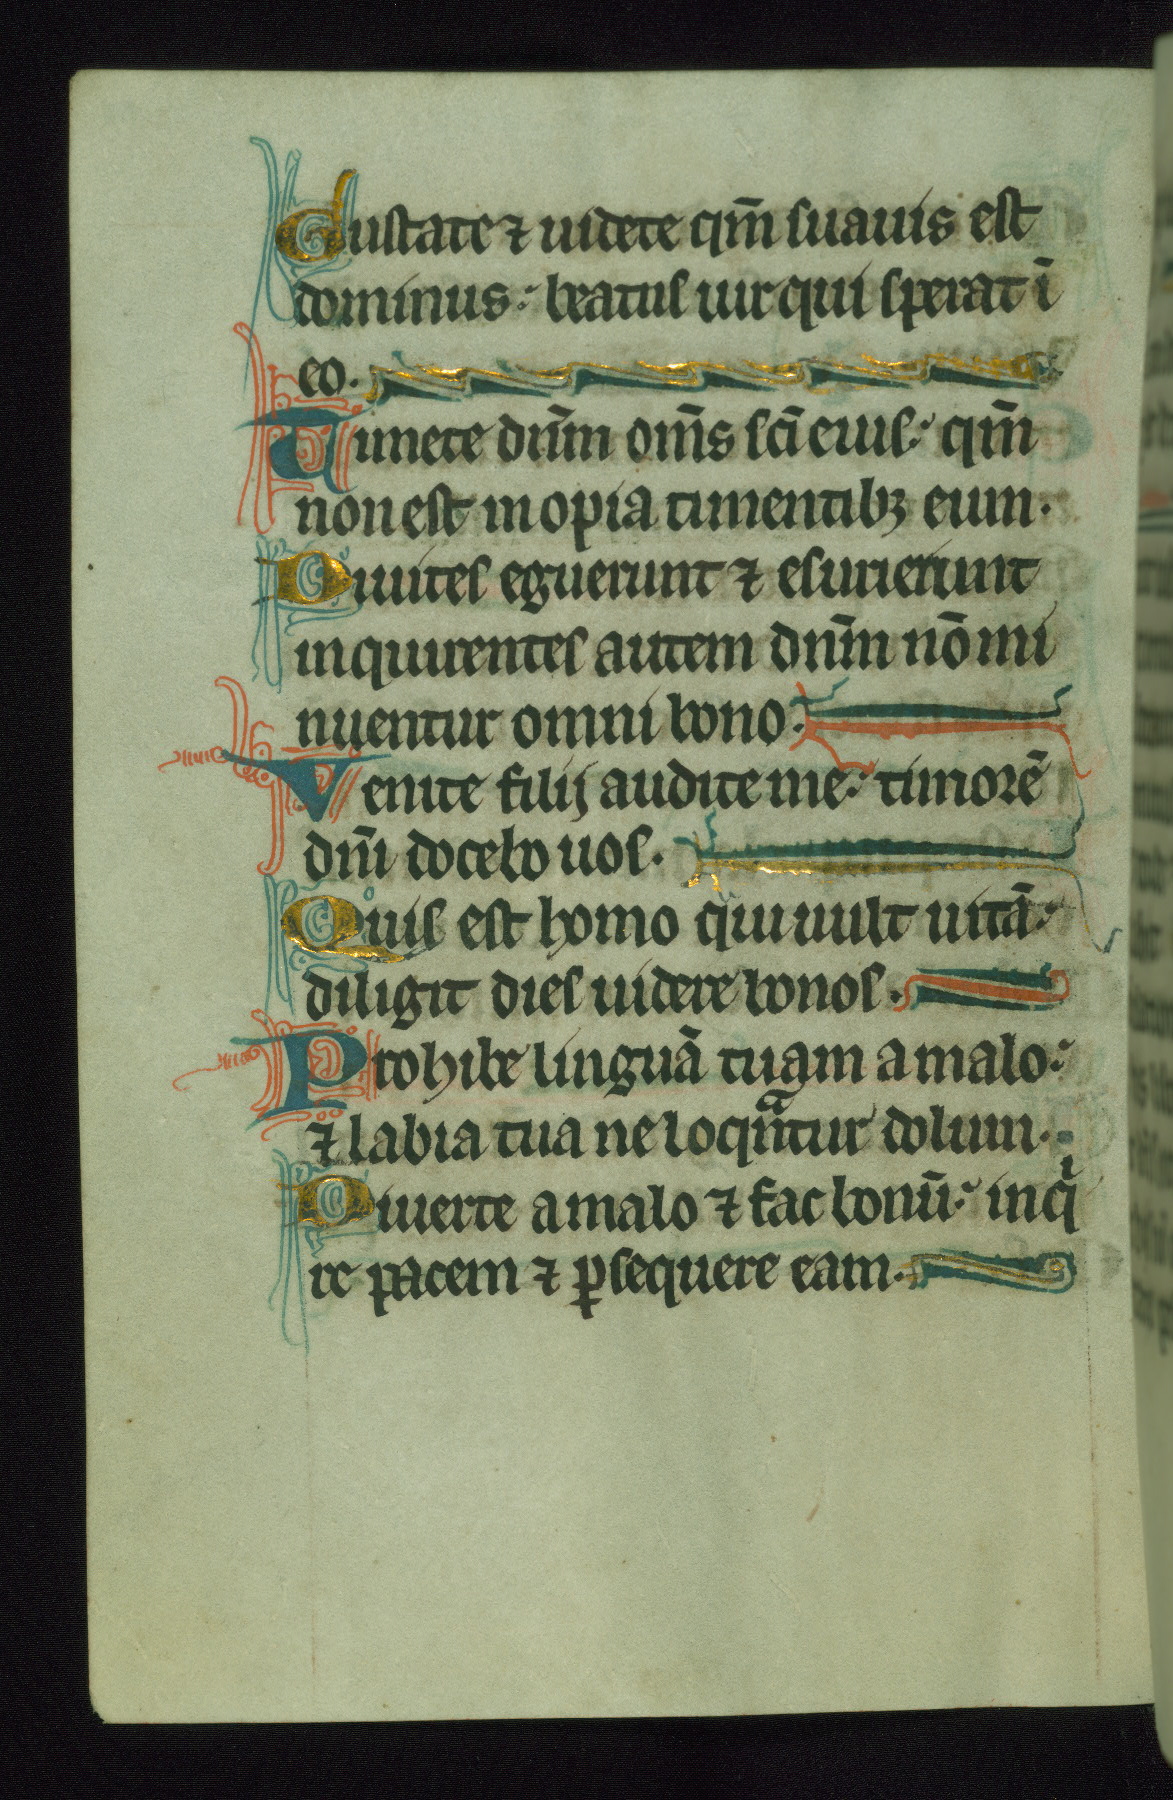 Gustate ⁊ uidete qm̄ suauis est
dominus: beatus uir qui sperat ī
eo.
Timete dn̄m om̄s sc̄i eius: qm̄
non est inopia timentibꝫ eum.
Diuites eguerunt ⁊ esurierunt
inquirentes autem dn̄m nō mi
nuentur omni bono:
Venite filij audite me: timorē
dn̄i docebo uos.
Quis est homo qui uult uitā:
diligit dies uidere bonos.
Prohibe linguā tuam a malo:
⁊ labia tua ne loqᷓntur dolum.
Diuerte a malo ⁊ fac bonū: inqͥ
re pacem ⁊ ꝑsequere eam.